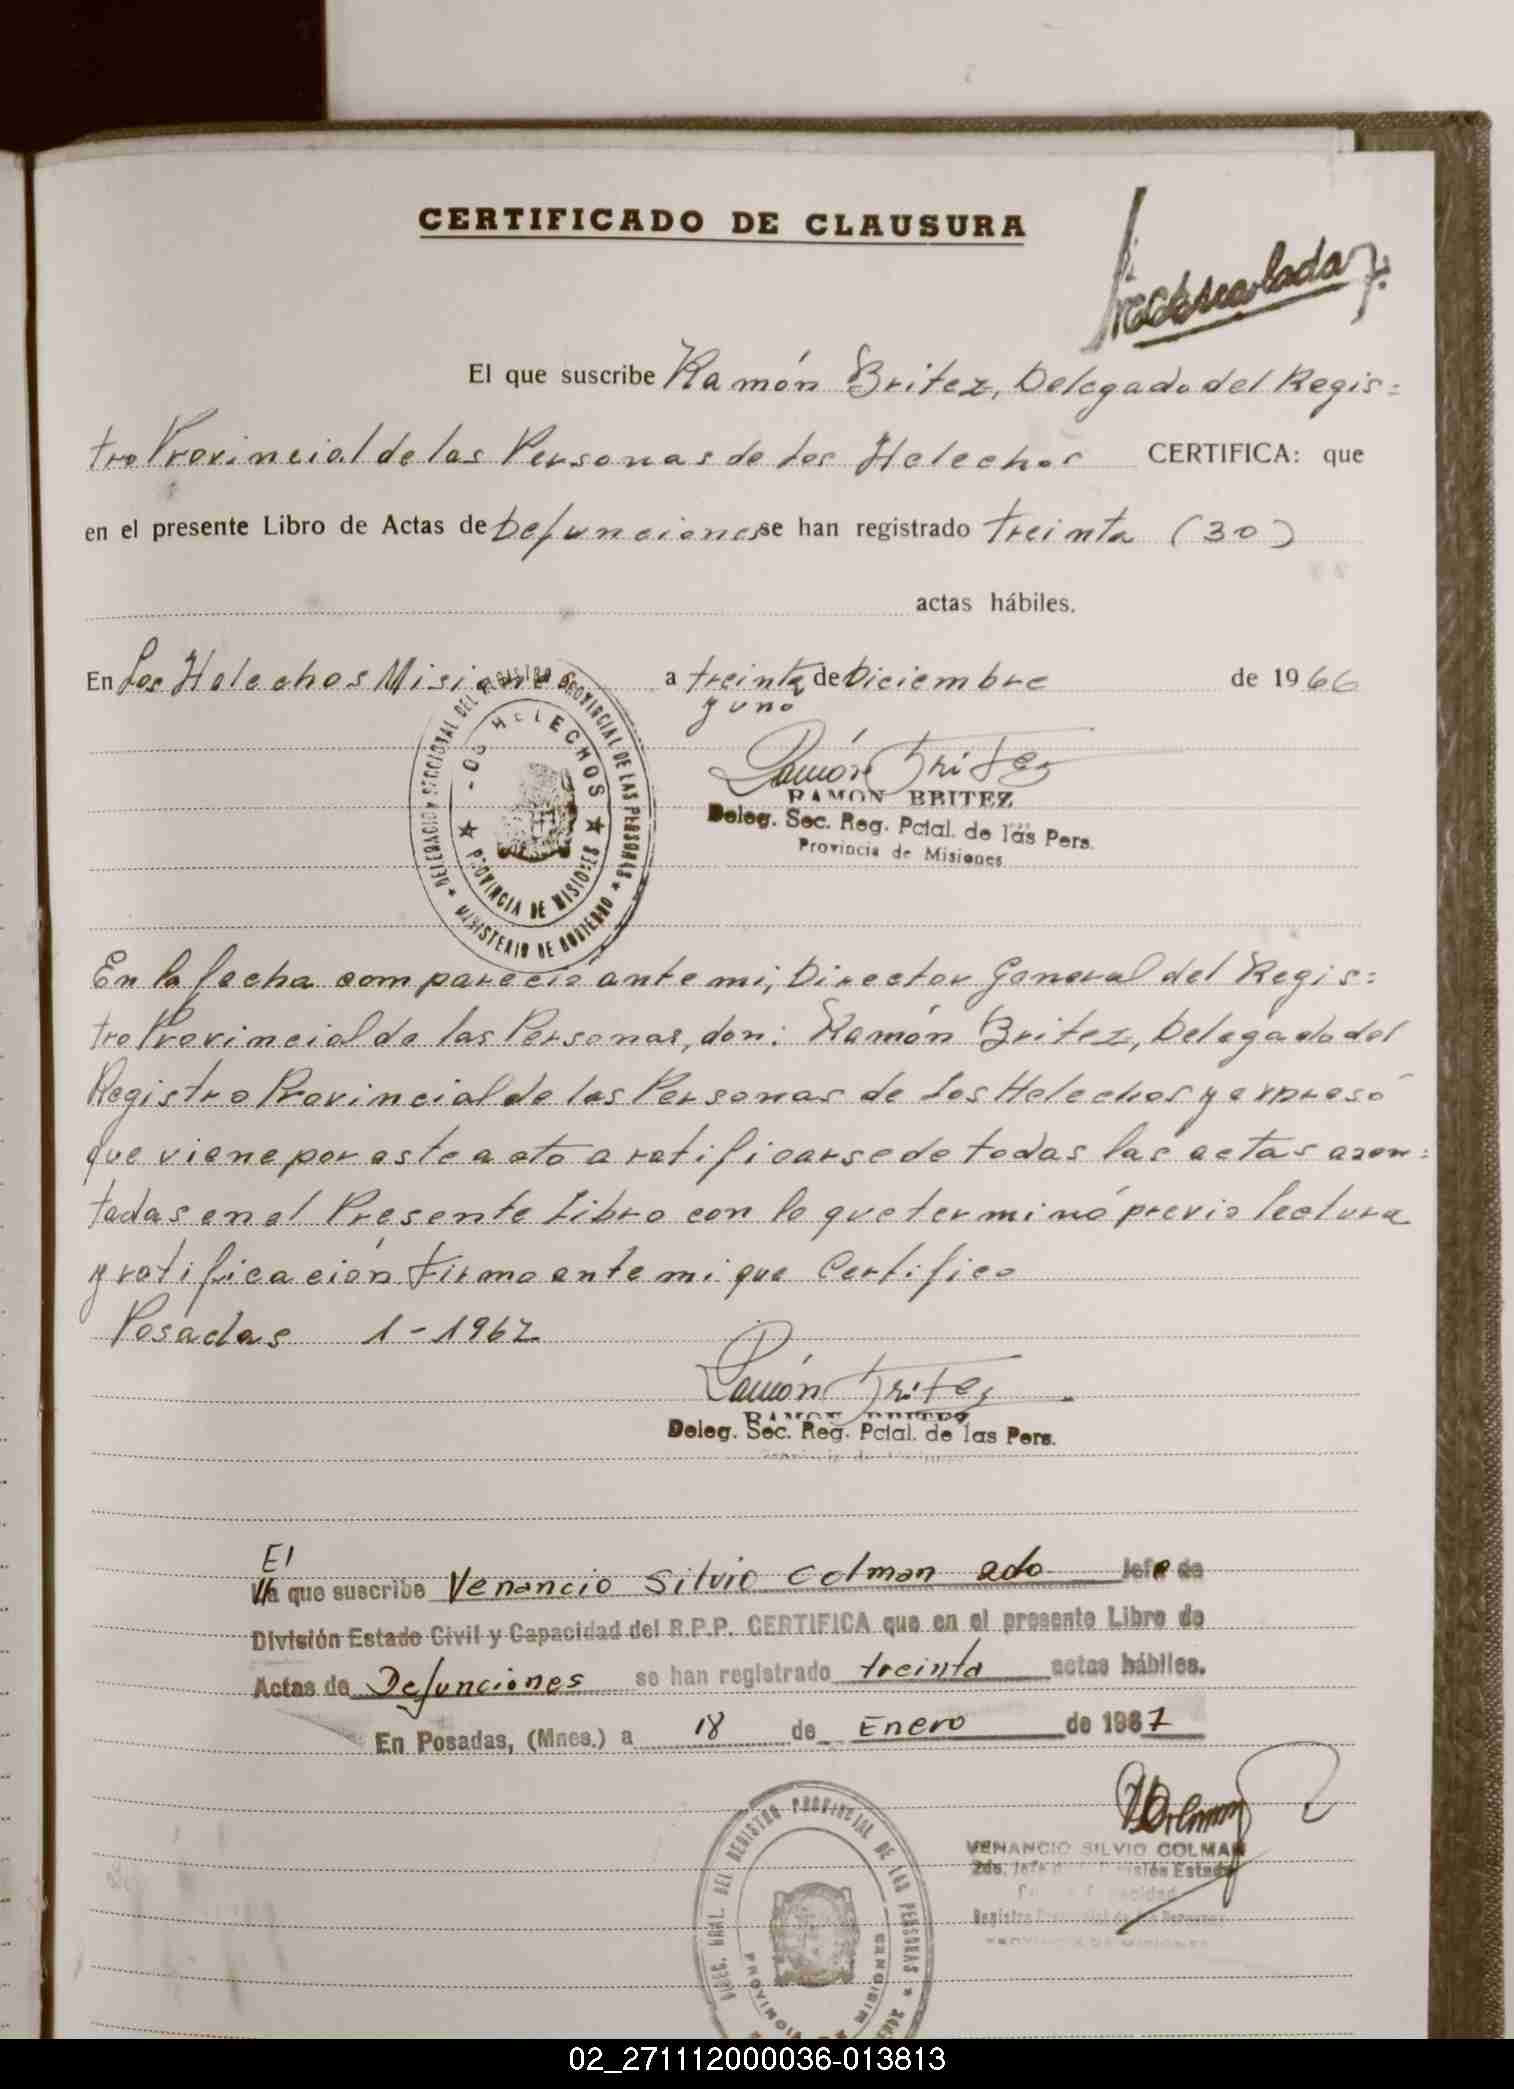 CERTIFICADO DE CLAUSURA
El que suscribe Ramón Britez, Delegado del Regis=
tro Provincial de las Personas de Los Helechos CERTIFICA: que
en el presente Libro de Actas de Defunciones se han registrado treinta (30)
actas hábiles.
En Los Helechos Misiones a treinta de Diciembre de 1966
y uno
Ramón Britez
RAMON BRITEZ
Deleg. Sec. Reg. Pcial. de las Pers.
Provincia de Misiones
DELEGACION SECCIONAL DEL REGISTRO PROVINCIAL DE LAS PERSONAS
★ MINISTERIO DE GOBIERNO ★
LOS HELECHOS
★ PROVINCIA DE MISIONES ★
En la fecha comparecio ante mi, Director General del Regis=
tro Provincial de las Personas, don: Ramón Britez, Delegado del
Registro Provincial de las Personas de Los Helechos y expresó
que viene por este acto a ratificarse de todas las actas asen=
tadas en el Presente Libro con lo que terminó previo lectura
y ratificación firma ante mi que Certifico
Posadas 1-1967
Ramón Britez
RAMON BRITEZ
Deleg. Sec. Reg. Pcial. de las Pers.
El
La que suscribe Venancio Silvio Colman 2do Jefe de
División Estado Civil y Capacidad del R.P.P. CERTIFICA que en el presente Libro de
Actas de Defunciones se han registrado treinta actas hábiles.
En Posadas, (Mnes.) a 18 de Enero de 1967
VENANCIO SILVIO COLMAN
2do. Jefe División Estado
DIREC. GRAL. DEL REGISTRO PROVINCIAL DE LAS PERSONAS
02_271112000036-013813